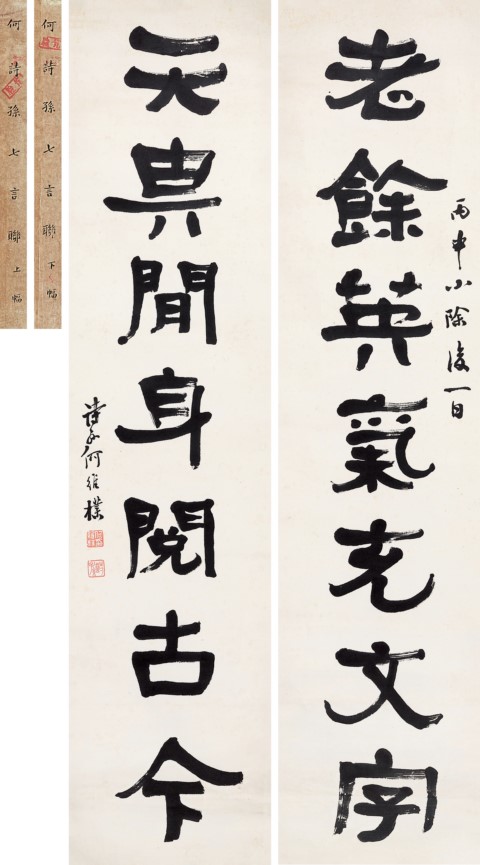 老餘英氣充文字
丙申小除後一日
天畀閒身閱古今
詩孫何維樸
何詩孫七言聯下幅
何詩孫七言聯上幅